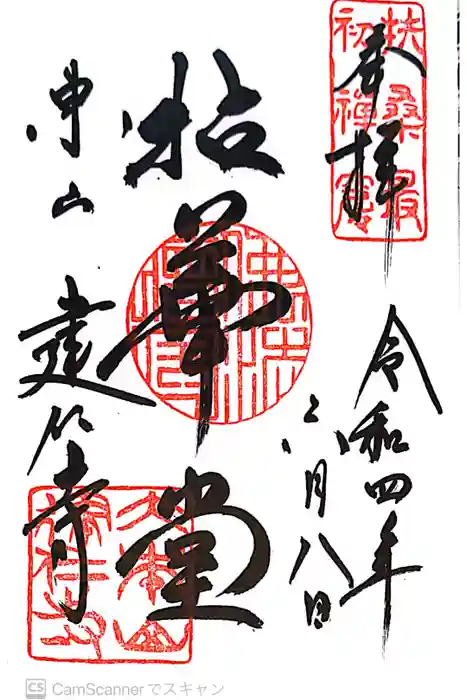 扶桑最
初禪窟
奉拝
令和四年
六月八日
拈華堂
東山 建仁寺
CS CamScannerでスキャン